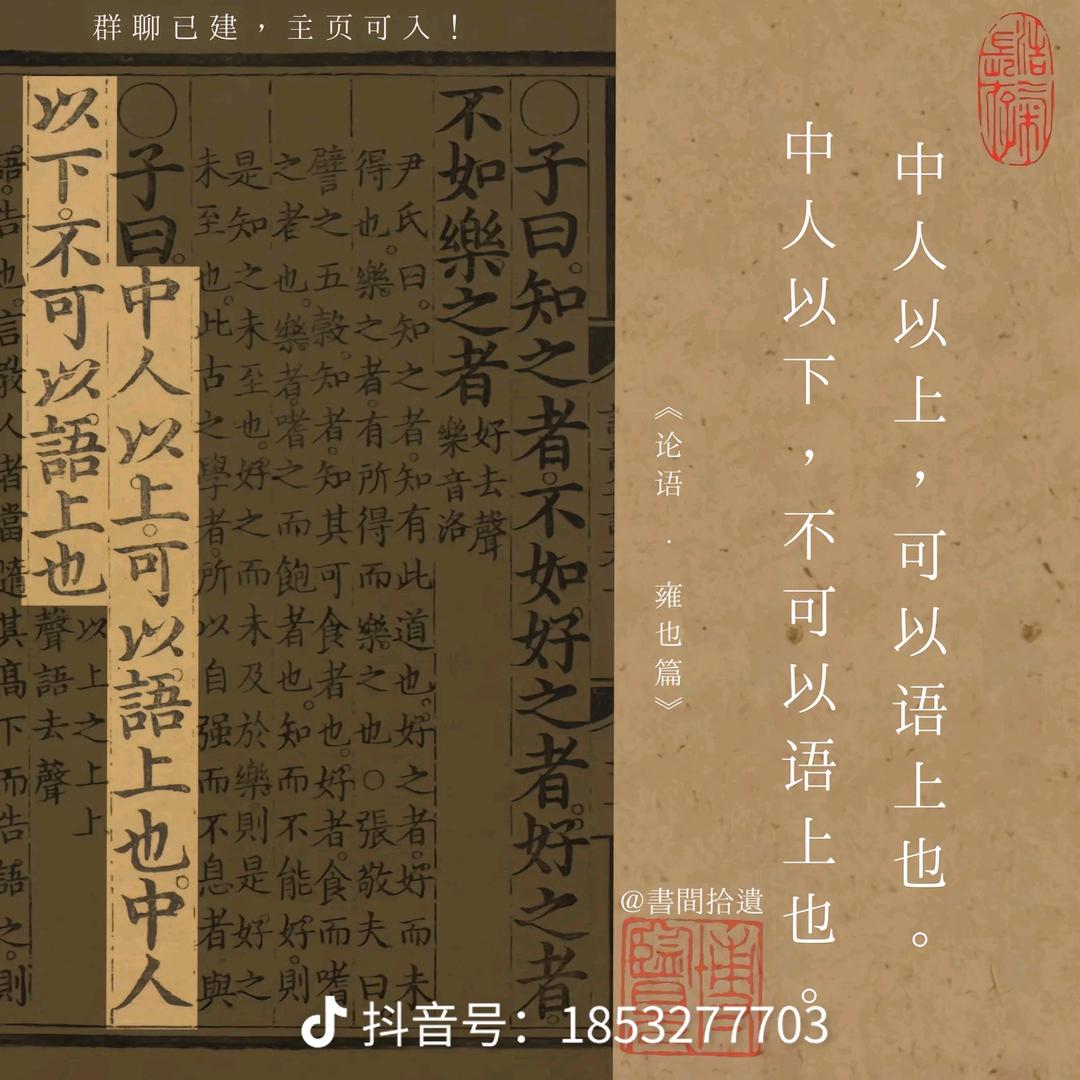 群聊已建，主页可入！
中人以上，可以语上也。
中人以下，不可以语上也。
《论语 · 雍也篇》
浩氣長存
@書間拾遺
○子曰。知之者。不如好之者。好之者
不如樂之者
好去聲
樂音洛
尹氏曰。知之者。知有此道也。好之者。好而未
得也。樂之者。有所得而樂之也○張敬夫曰
譬之五穀。知者。知其可食者也。好者。食而嗜
之者也。樂者。嗜之而飽者也。知而不能好。則
是知之未至也。好之而未及於樂。則是好之
未至也。此古之學者。所以自强而不息者與
○子曰。中人以上。可以語上也。中人
以下。不可以語上也
以上之上上
聲語去聲
語。告也。言教人者當隨其高下而告語之。則
抖音号：1853277703